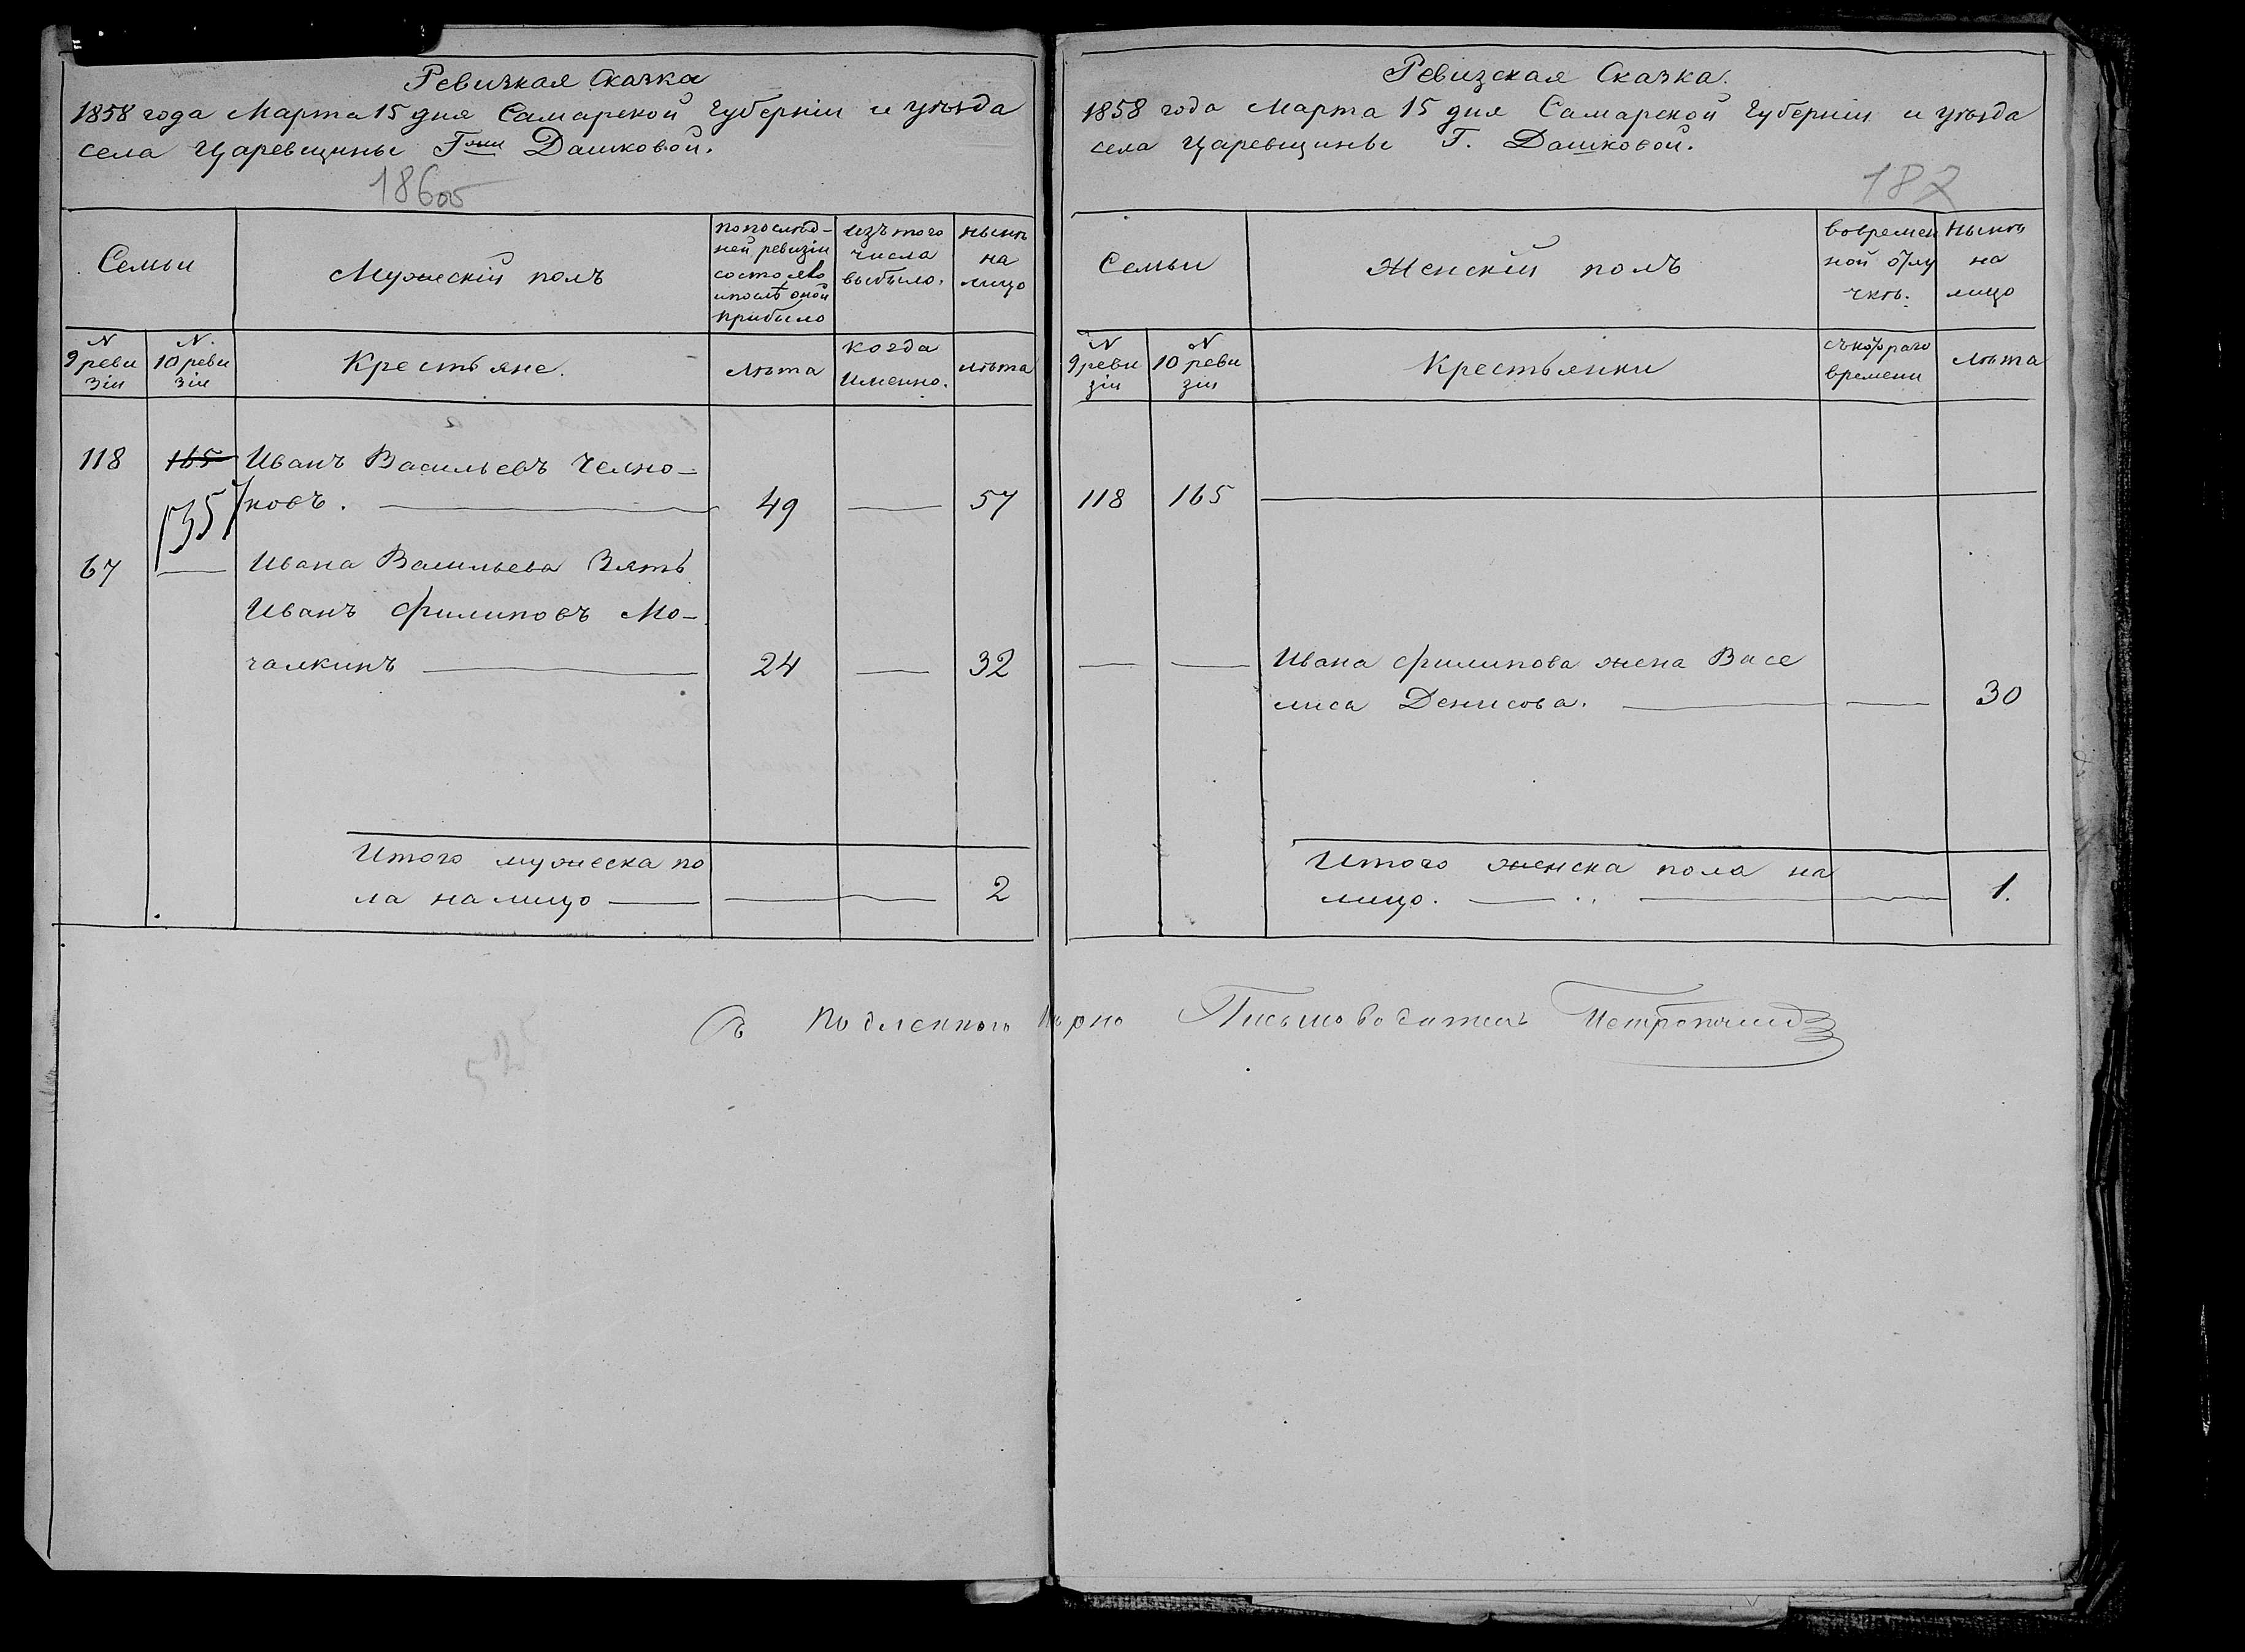 Ревизкая Сказка
1858 года Марта 15 дня Самарской Губерніи и уѣзда
села Царевщины Гжи Дашковой.
186об
Семьи
Мужескій полъ
попослѣд-
ней ревизіи
состояло
ипослѣ оной
прибыло
изътого
числа
выбыло.
нынѣ
на
лицо
N
9 реви
зіи
N.
10 реви
зіи
Крестьяне.
лѣта
когда
именно.
лѣта
118 165 Иванъ Васильевъ Челно-
135 ковъ. 49 57
67 Ивана Васильева Зять
Иванъ Филиповъ Мо-
чалкинъ 24 32
Итого мужеска по
ла налицо 2
Ревизская Сказка.
1858 года Марта 15 дня Самарской Губерніи и уѣзда
села Царевщины Г. Дашковой.
187
Семьи
Женскій полъ
вовремен
ной отлу
чкѣ.
Нынѣ
на
лицо
N
9 реви
зіи
N
10 реви
зіи
Крестьянки
съкотораго
времени
лѣта
118 165
Ивана Филипова жена Васе
лиса Денисова. 30
Итого женска пола на
лицо. 1.
Съ подленнымъ вѣрно Письмоводитель